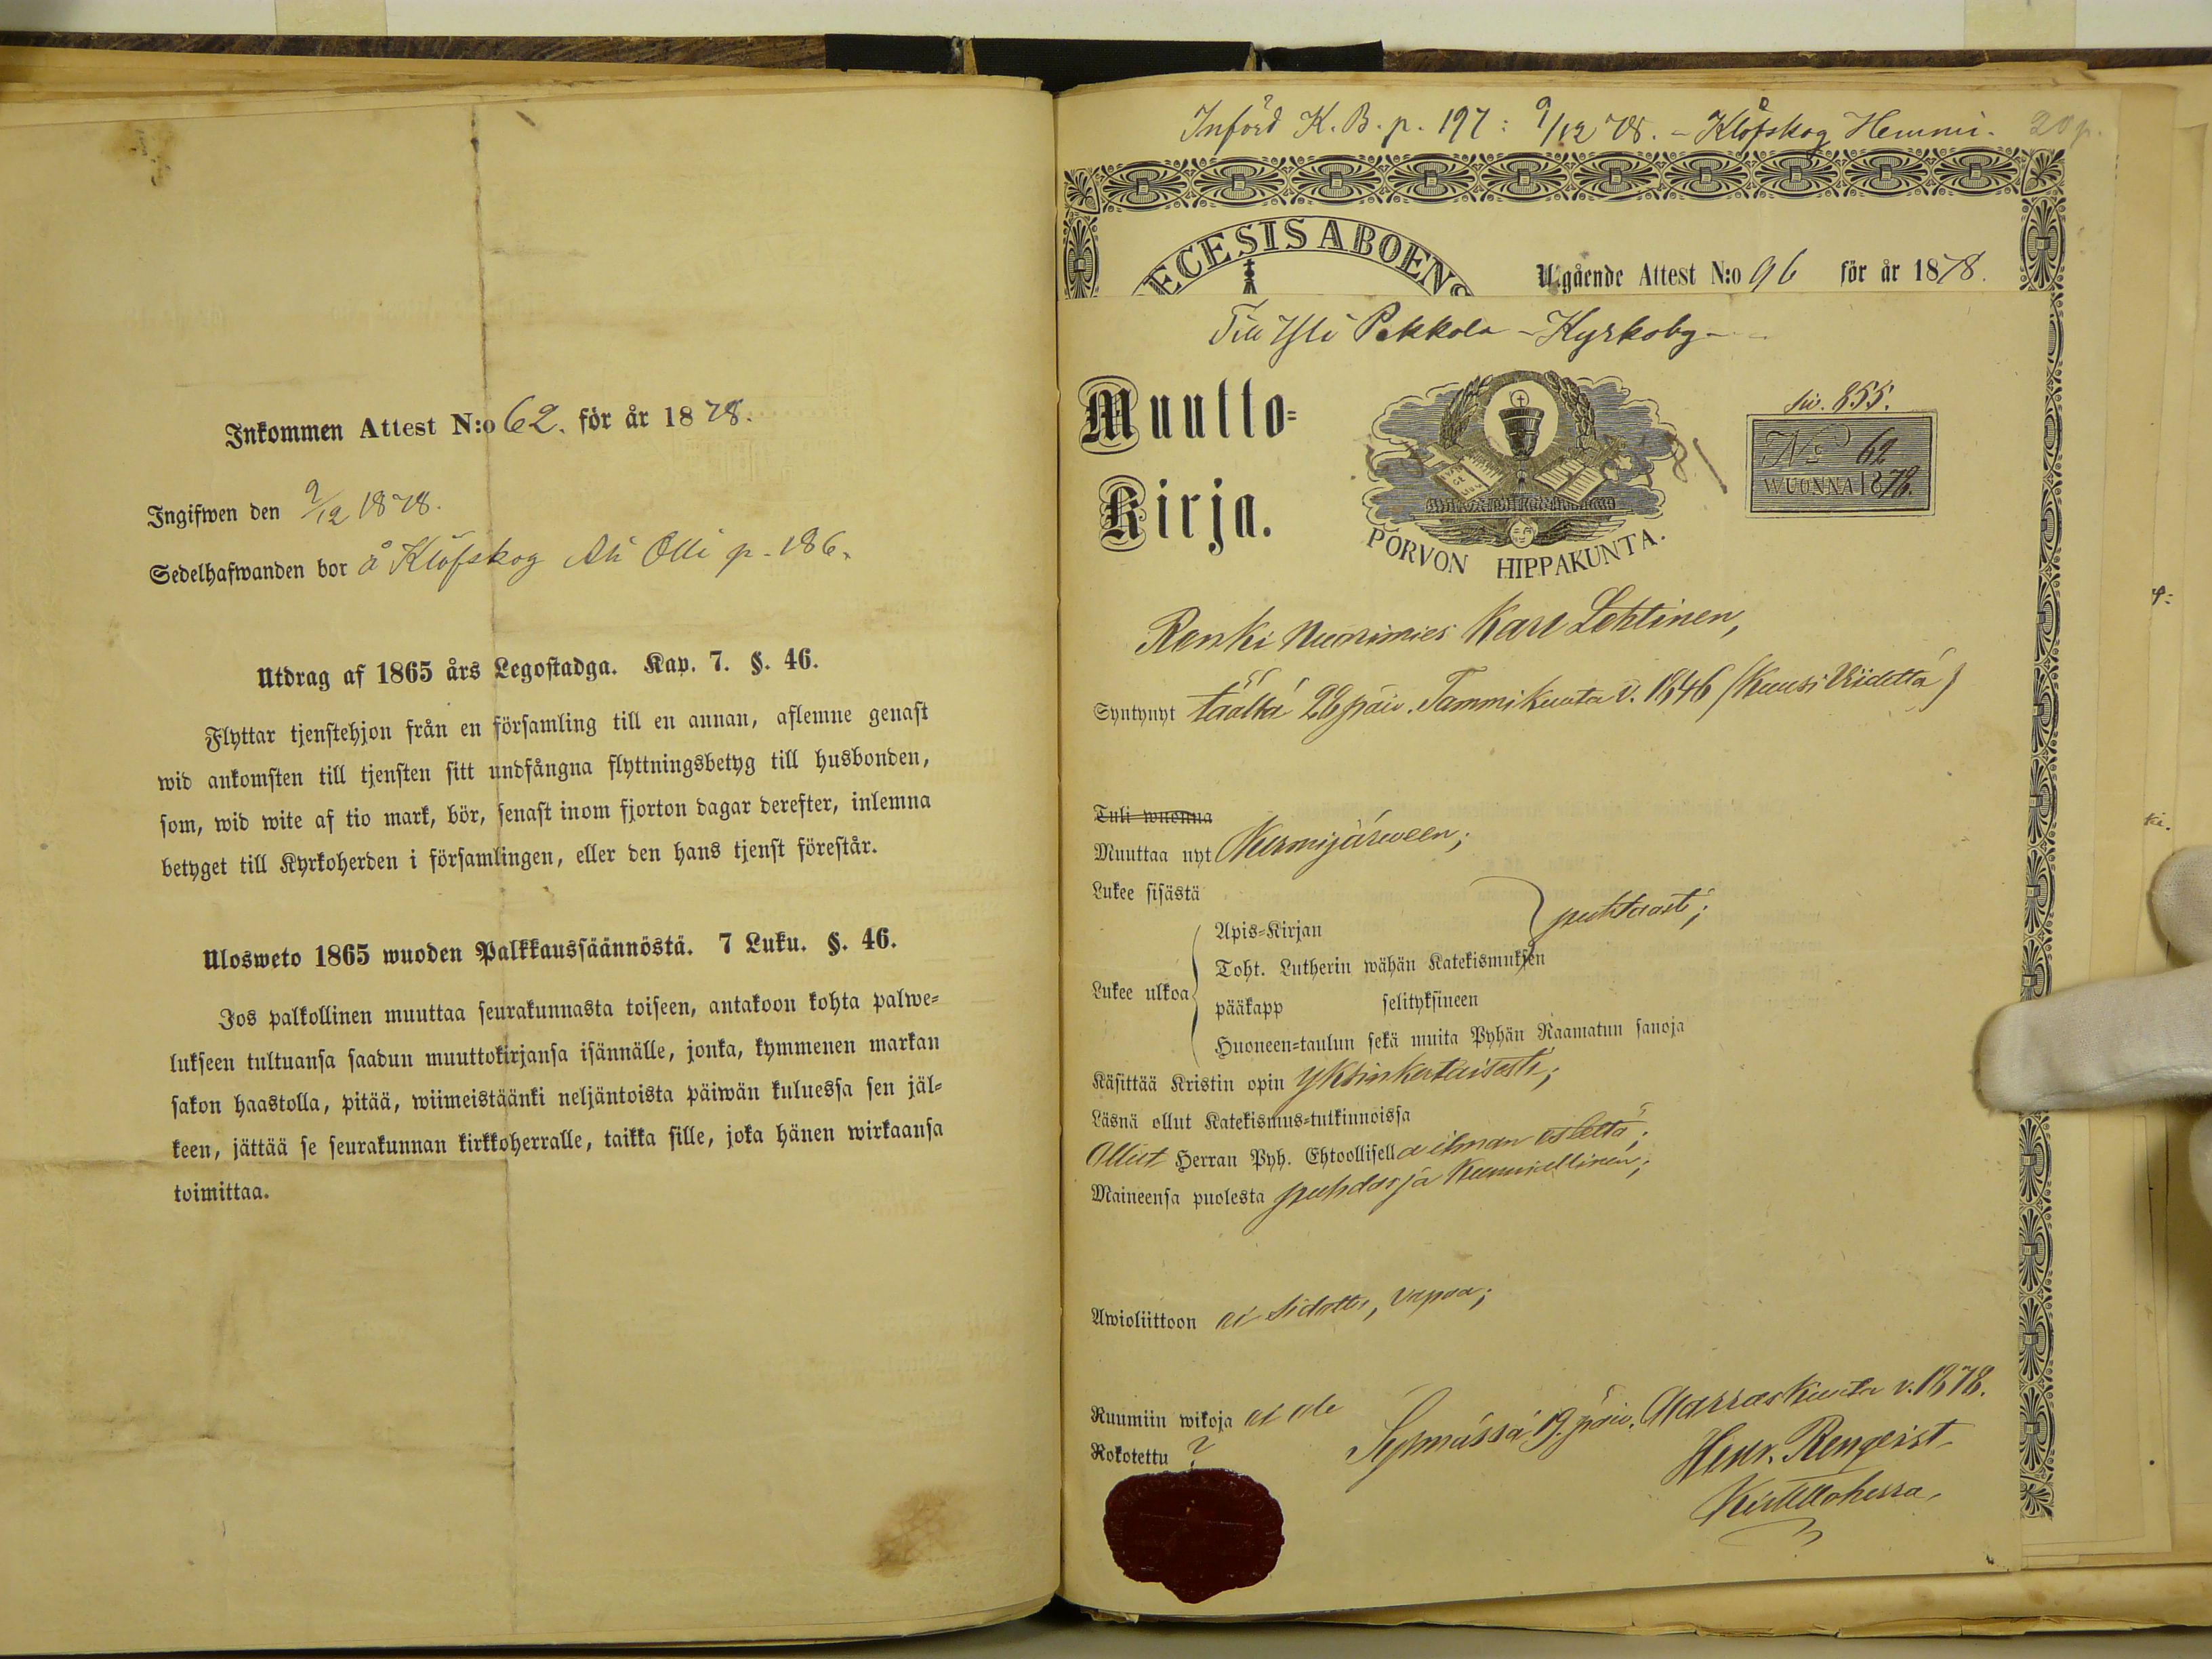 Inkommen Attest N:o 62. för år 1878.
Ingifwen den 9/12 1878.
Sedelhafwanden bor å Klöfskog Ali Olli p. 186.
Utdrag af 1865 års Legostadga. Kap. 7. §. 46.
Flyttar tjenstehjon från en församling till en annan, aflemne genast
wid ankomsten till tjensten sitt undfångna flyttningsbetyg till husbonden,
som, wid wite af tio mark, bör, senast inom fjorton dagar derefter, inlemna
betyget till Kyrkoherden i församlingen, eller den hans tjenst förestår.
Ulosweto 1865 wuoden Palkkaussäännöstä. 7 Luku. §. 46.
Jos palkollinen muuttaa seurakunnasta toiseen, antakoon kohta palwe=
lukseen tultuansa saadun muuttokirjansa isännälle, jonka, kymmenen markan
sakon haastolla, pitää, wiimeistäänki neljäntoista päiwän kuluessa sen jäl=
keen, jättää se seurakunnan kirkkoherralle, taikka sille, joka hänen wirkaansa
toimittaa.
Införd K. B. p. 197: 9/12 78. - Klöfskog Hemmi. 20 p.
ECESIS ABOENS
Utgående Attest N:o 96 för år 1878.
Till Yli Pekkola - Kyrkoby -
Muutto=
Kirja.
PORVON HIPPAKUNTA.
Siv. 855.
No 62
WUONNA 1878.
Renki Nuorimies Karl Lehtinen,
Syntynyt täällä 26 päiv. Tammikuuta v. 1846 (Kuusi Viidettä)
Tuli wuonna
Muuttaa nyt Nurmijärween;
Lukee sisästä
Apis=Kirjan
puhtaasti;
Toht. Lutherin wähän Katekismuksen
Lukee ulkoa
pääkapp selityksineen
Huoneen=taulun sekä muita Pyhän Raamatun sanoja
Käsittää Kristin opin yksinkertaisesti;
Läsnä ollut Katekismus=tutkinnoissa
Ollut Herran Pyh. Ehtoollisella ilman estettä;
Maineensa puolesta puhdas ja kunniallinen;
Awioliittoon ei sidottu, vapaa;
Ruumiin wikoja ei ole
Rokotettu ?
Sysmässä 19 päiv. Marraskuuta v. 1878.
Henr. Renqvist
Kirkkoherra.